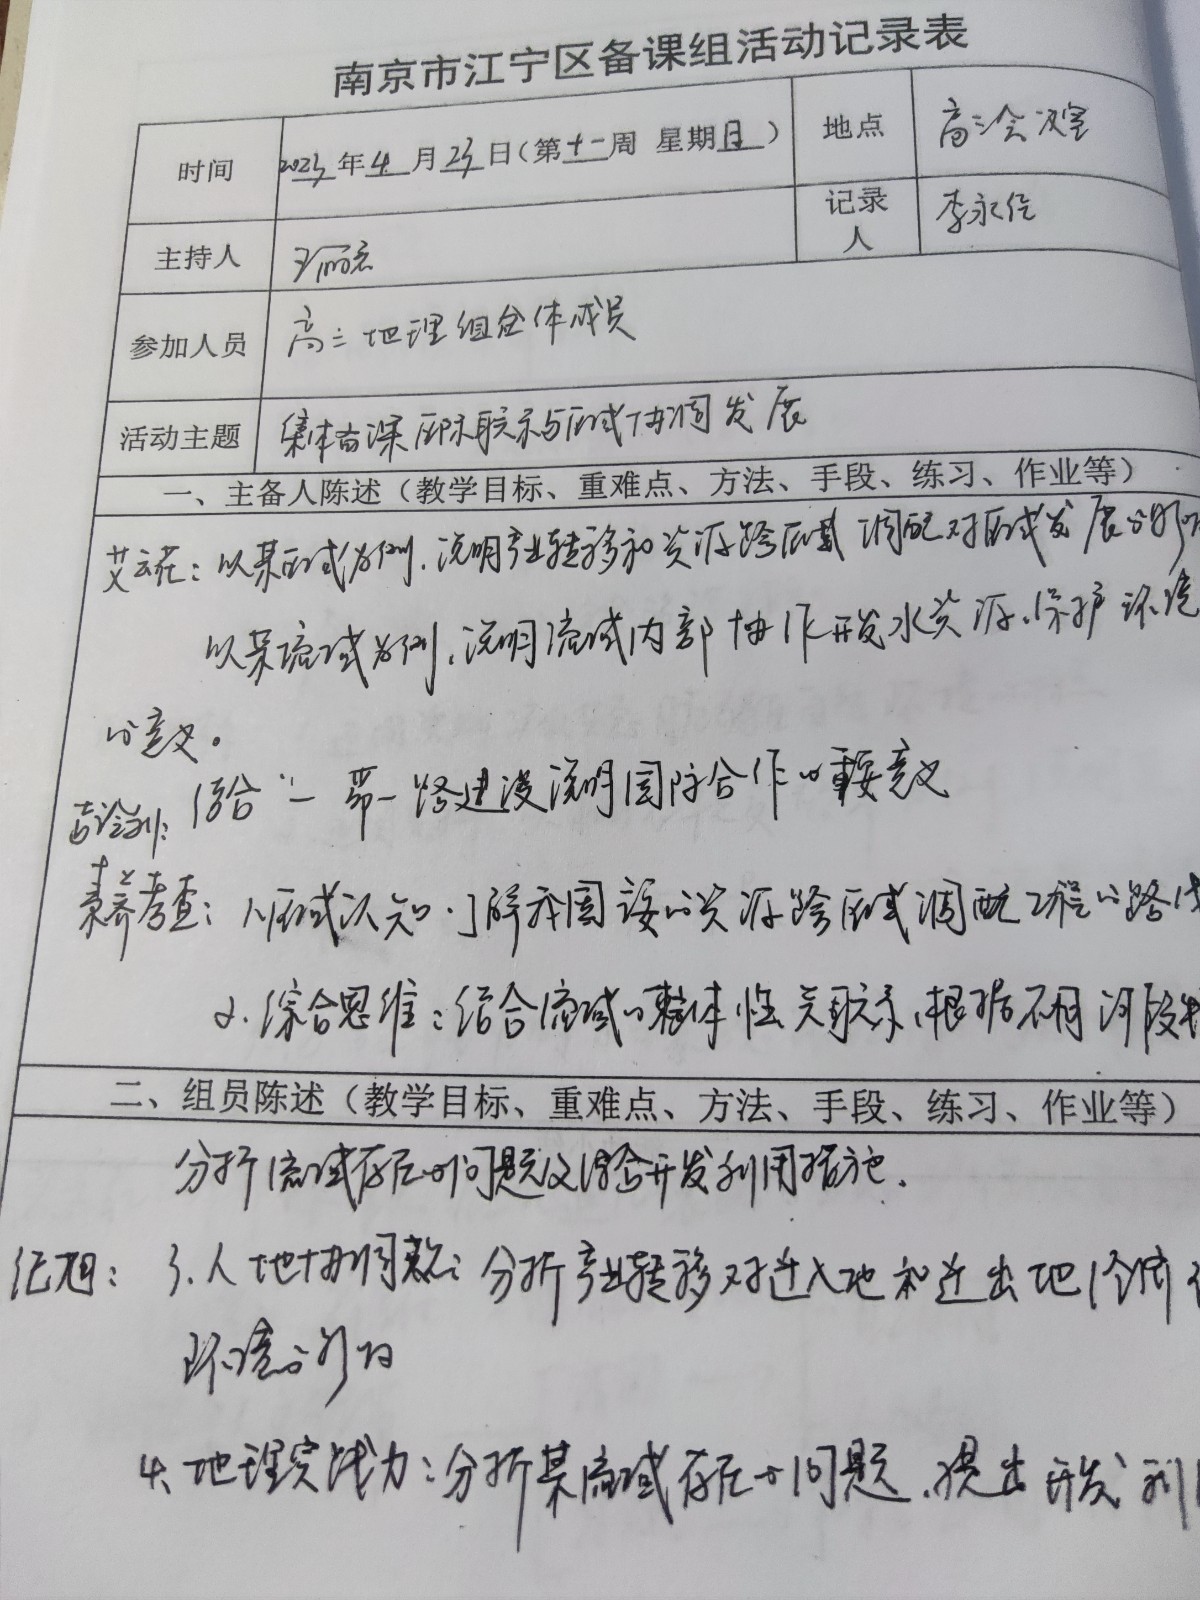 南京市江宁区备课组活动记录表
时间 2023年4月23日(第十一周 星期日) 地点 高二会议室
主持人 王丽君 记录人 李永
参加人员 高二地理组全体成员
活动主题 集体备课 区际联系与区域协调发展
一、主备人陈述(教学目标、重难点、方法、手段、练习、作业等)
艾云花：以某区域为例，说明产业转移和资源跨区域调配对区域发展的影响
以某流域为例，说明流域内部协作开发水资源、保护环境
的意义。
结合"一带一路建设说明国际合作的重要意义
素养考查：1、区域认知：了解我国 的资源跨区域调配工程的路线
2、综合思维：结合流域的整体性关联系，根据不同河段
二、组员陈述(教学目标、重难点、方法、手段、练习、作业等)
分析流域存在的问题及综合开发利用措施。
3、人地协调观：分析产业转移对迁入地和迁出地经济
环境的影响
4、地理实践力：分析某流域存在的问题，提出开发利用